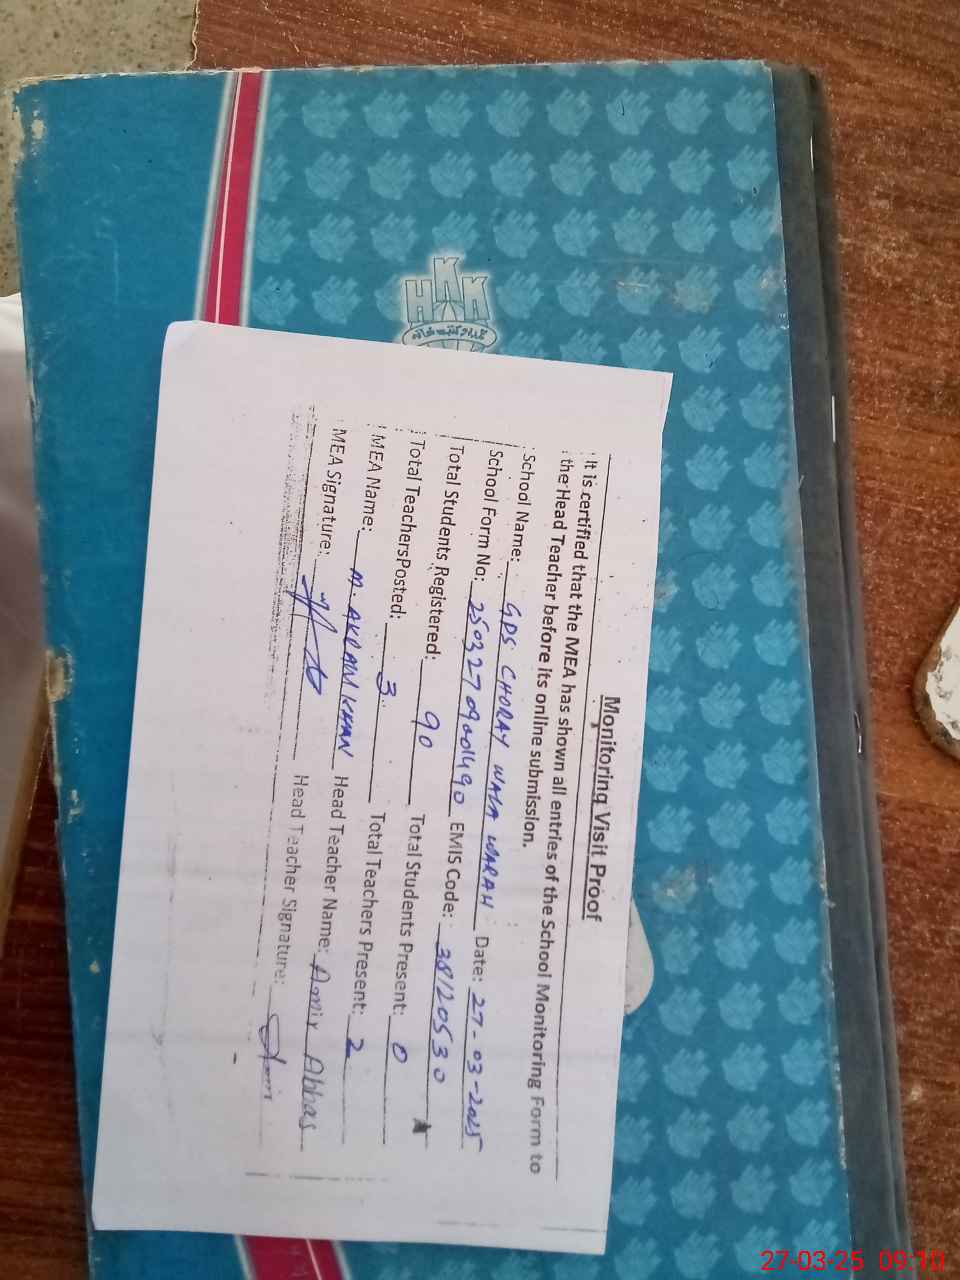 Monitoring Visit Proof
It is certified that the MEA has shown all entries of the School Monitoring Form to
the Head Teacher before its online submission.
School Name: GPS CHORAY WALA WARAH Date: 27-03-2025
School Form No: 25032709001490 EMIS Code: 38120530
Total Students Registered: 90 Total Students Present: 0
Total TeachersPosted: 3 Total Teachers Present: 2
MEA Name: M. AKRAM KHAN Head Teacher Name: Amir Abbas
MEA Signature: Head Teacher Signature: Amir
27-03-25 09:10